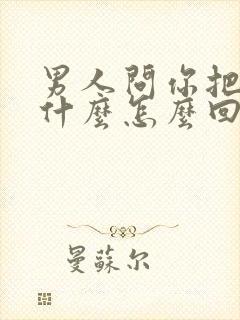 男人問你把
什麼怎麼回
曼蘇尔